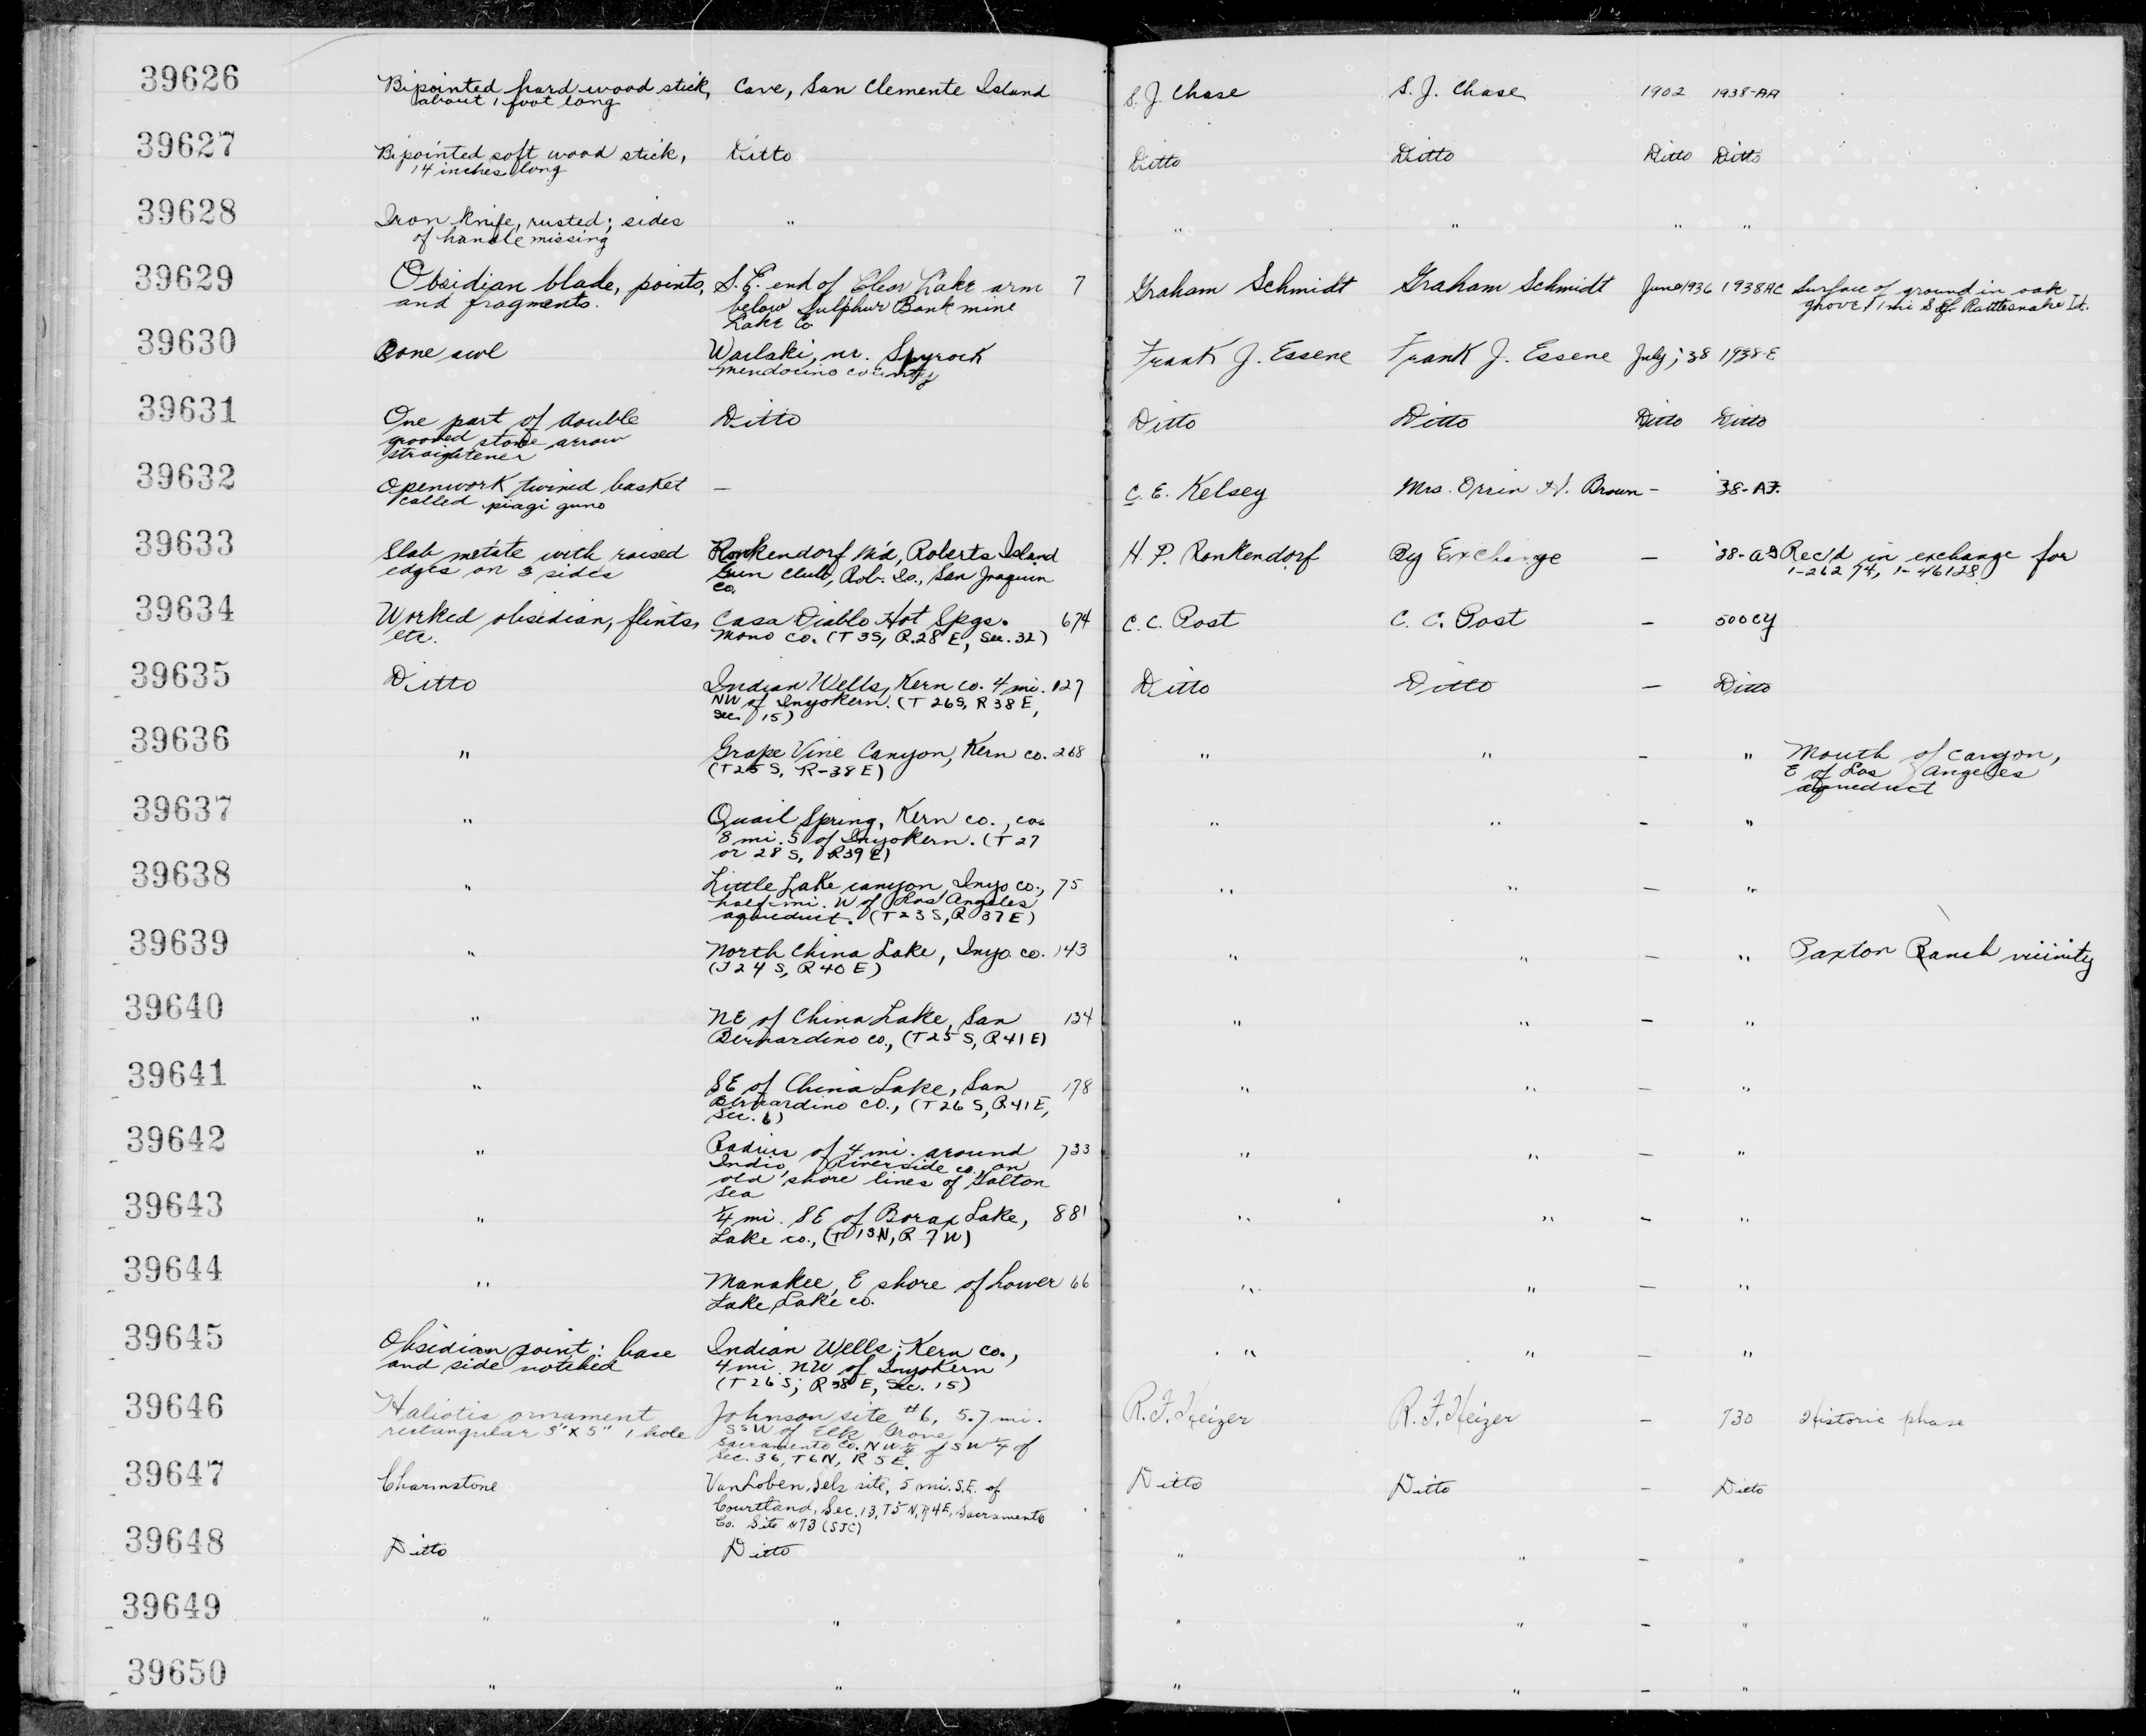 39626 Bipointed hard wood stick, Cave, San Clemente Island S. J. Chase S. J. Chase 1902 1938-AA
about 1 foot long
39627 Bipointed soft wood stick, Ditto Ditto Ditto Ditto Ditto
14 inches long
39628 Iron knife, rusted; sides " " " " "
of handle missing
39629 Obsidian blade, points, S.E. end of Clear Lake arm 7 Graham Schmidt Graham Schmidt June 1936 1938AC Surface of ground in oak
and fragments. below Sulphur Bank mine grove 1 mi S of Rattlesnake Is.
Lake Co
39630 Bone awl Wailaki, nr. Spyrock Frank J. Essene Frank J. Essene July, 38 1938-E
Mendocino county
39631 One part of double Ditto Ditto Ditto Ditto Ditto
grooved stone arrow
straightener
39632 Openwork twined basket — C. E. Kelsey Mrs. Orrin H. Brown – '38-AF.
called piagi guno
39633 Slab metate with raised Ronkendorf M'd, Roberts Island H. P. Ronkendorf By Exchange — '38-AG Rec'd in exchange for
edges on 3 sides Gun Club, Rob. Is., San Joaquin 1-26274, 1-46128
Co.
39634 Worked obsidian, flints, Casa Diablo Hot Spgs. 674 C. C. Post C. C. Post — 500CY
etc. Mono Co. (T 3S, R.28 E, Sec. 32)
39635 Ditto Indian Wells, Kern co. 4 mi. 127 Ditto Ditto — Ditto
NW of Inyokern. (T 26S, R 38 E,
Sec. 15)
39636 " Grape Vine Canyon, Kern co. 268 " " – " Mouth of canyon,
(T25 S, R-38 E) E of Los Angeles
aqueduct
39637 " Quail Spring, Kern co., ca. " " – "
8 mi. S of Inyokern. (T 27
or 28 S, R39 E)
39638 " Little Lake canyon, Inyo co., 75 " " — "
half-mi. W of Los Angeles
aqueduct. (T23 S, R 37 E)
39639 " North China Lake, Inyo co. 143 " " — " Paxton Ranch vicinity
(T 24 S, R 40 E)
39640 " NE of China Lake, San 134 " " — "
Bernardino co., (T25 S, R 41 E)
39641 " SE of China Lake, San 178 " " — "
Bernardino co., (T 26 S, R 41 E,
Sec. 6)
39642 " Radius of 4 mi. around 733 " " — "
Indio, Riverside co., on
old shore lines of Salton
Sea
39643 " ¼ mi. SE of Borax Lake, 881 " " – "
Lake co., (T 13N, R 7 W)
39644 " Manakee, E shore of Lower 66 " " — "
Lake, Lake co.
39645 Obsidian point: base Indian Wells, Kern co., " " — "
and side notched 4 mi. NW of Inyokern
(T 26 S; R 38 E, Sec. 15)
39646 Haliotis ornament Johnson site #6, 5.7 mi. R. F. Heizer R. F. Heizer — 730 Historic phase
rectangular 3" X 5" 1 hole SSW of Elk Grove
Sacramento Co. NW ¼ of SW ¼ of
Sec. 36, T6N, R 5 E.
39647 Charmstone Van Loben Sels site, 5 mi. S.E. of Ditto Ditto — Ditto
Courtland, Sec. 13, T5 N, R 4E, Sacramento
Co. Site #73 (SJC)
39648 Ditto Ditto " " – "
39649 " " " " – "
39650 " " " " – "